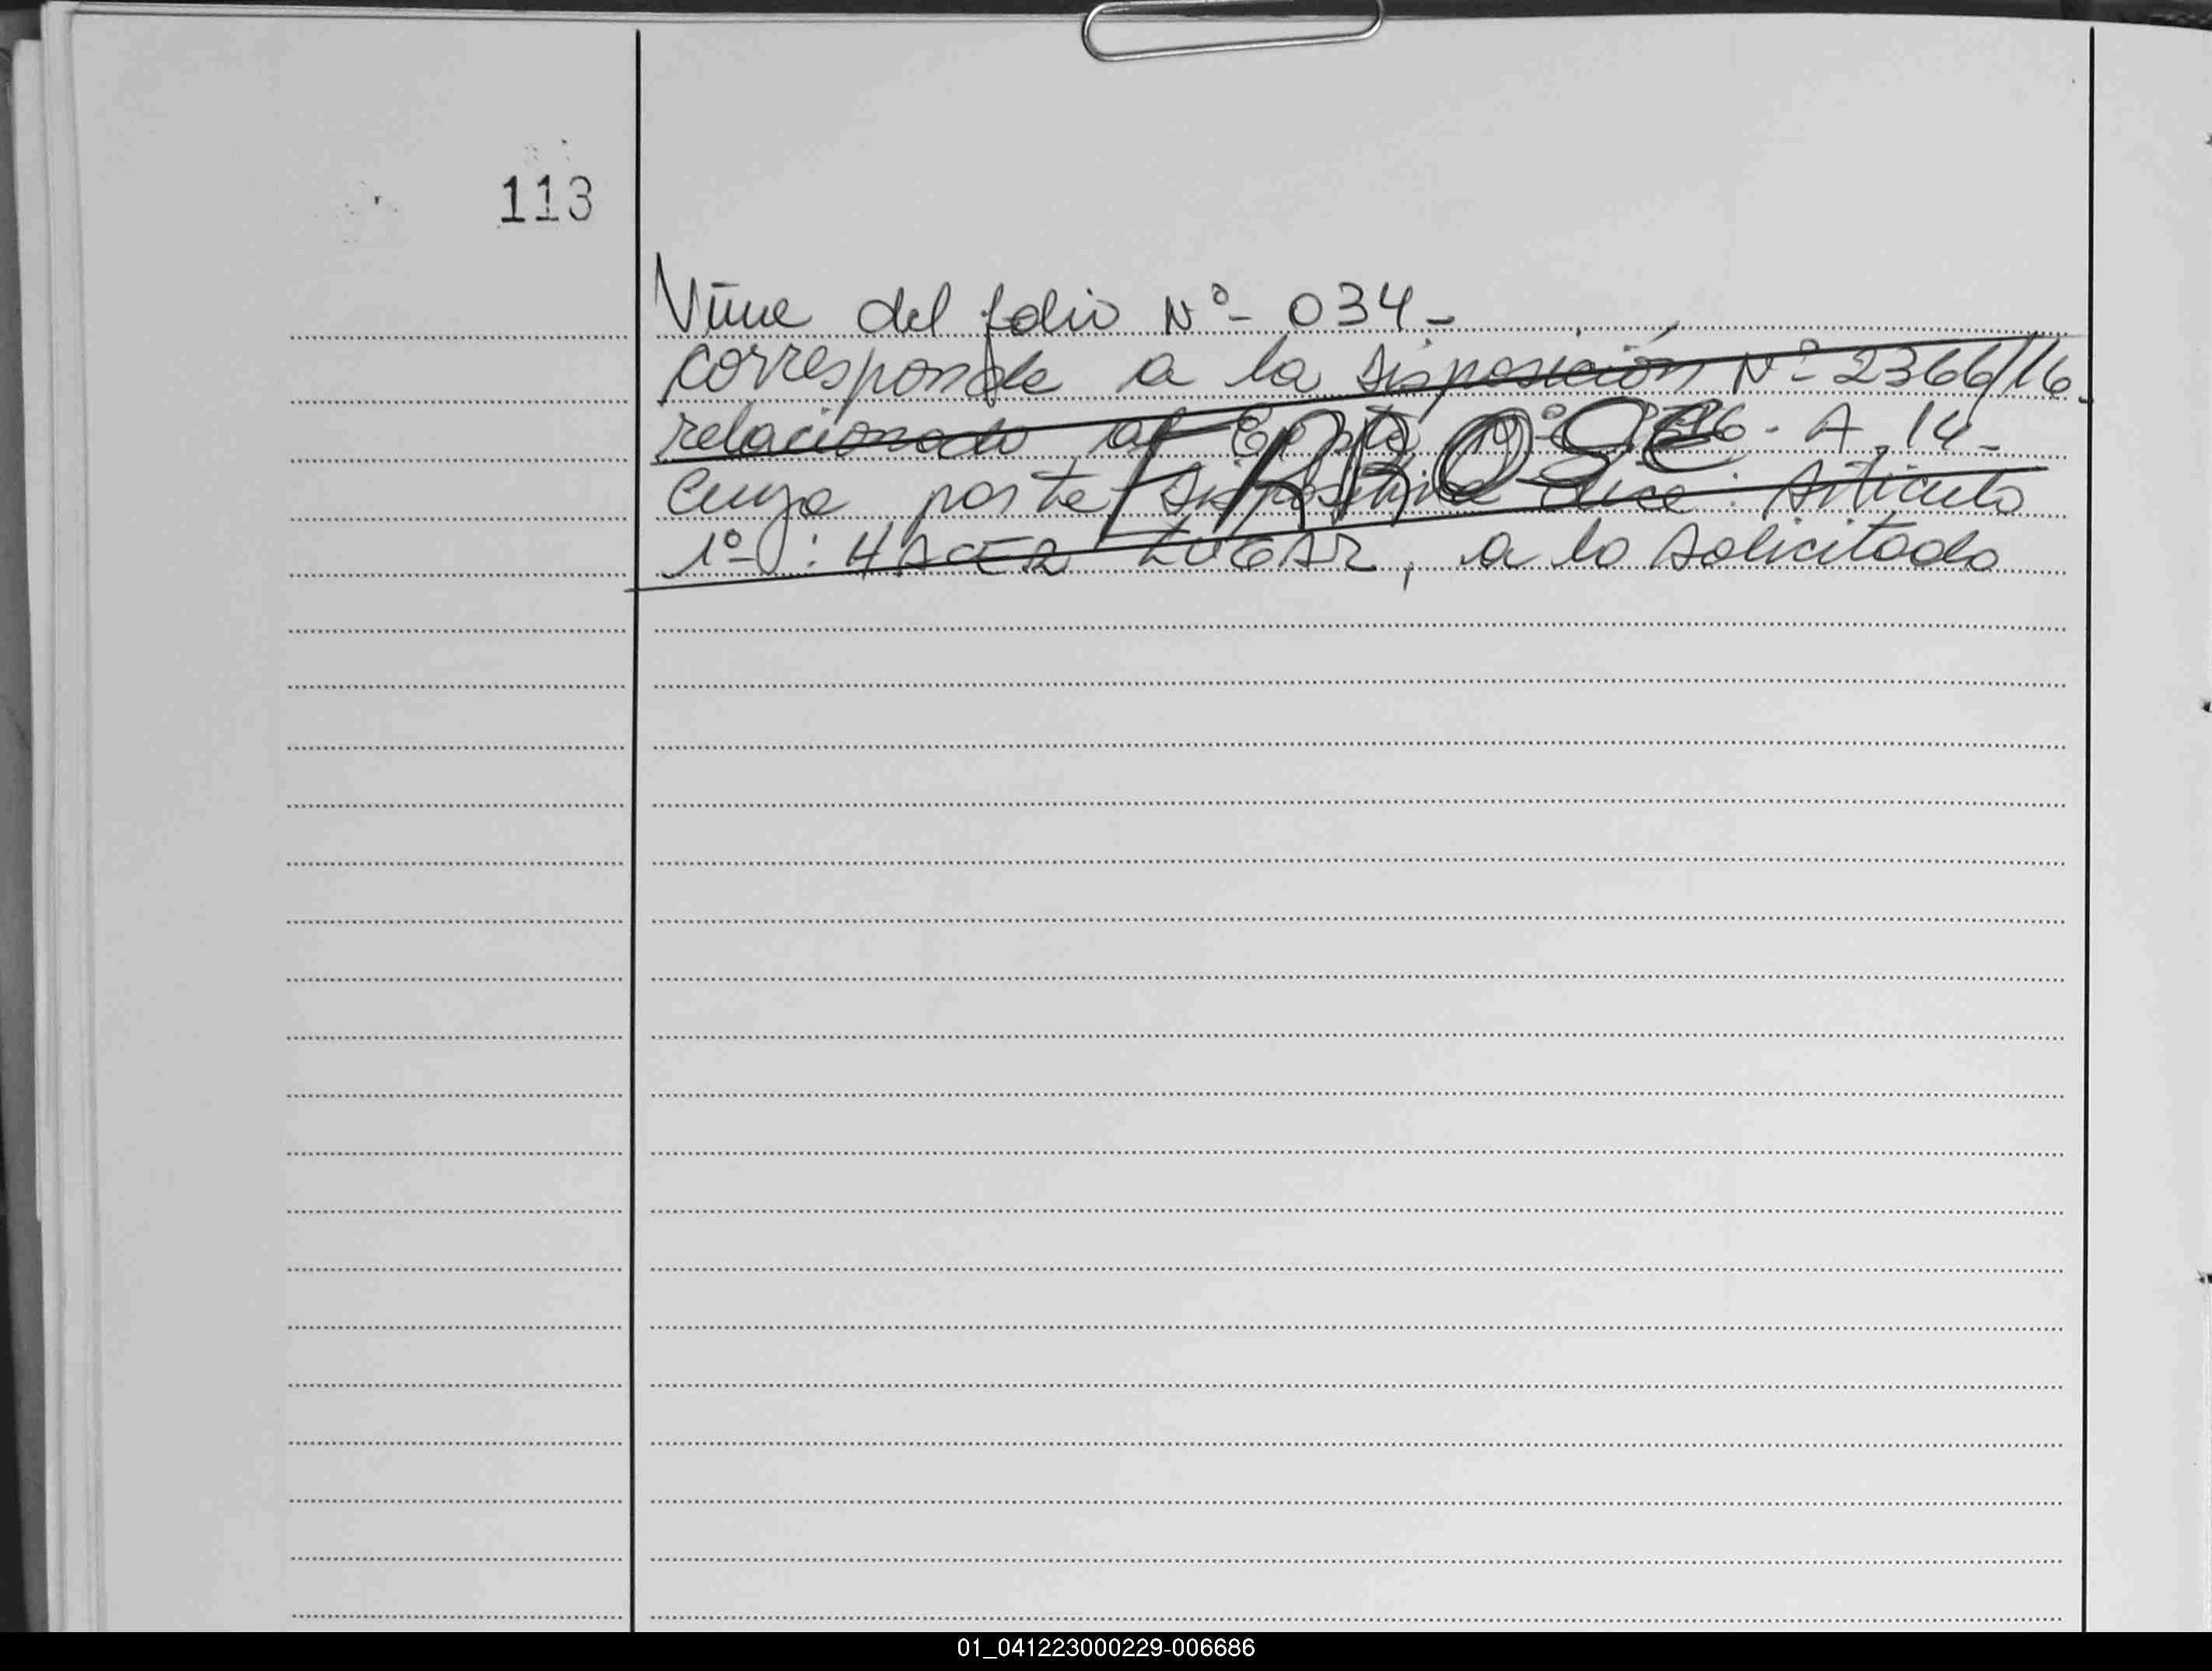 113
Viene del folio Nº - 034 -
corresponde a la disposición Nº 2366/16.
relacionado al Expte Nº A - 14 -
ERROSE
cuya parte dispositiva dice: Artículo
1º : HACER LUGAR, a lo solicitado
01_041223000229-006686